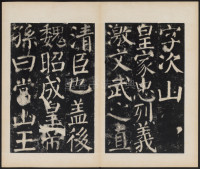 字次山
皇家忠烈義
激文武之直
清臣也蓋後
魏昭成皇帝
孫曰常山王